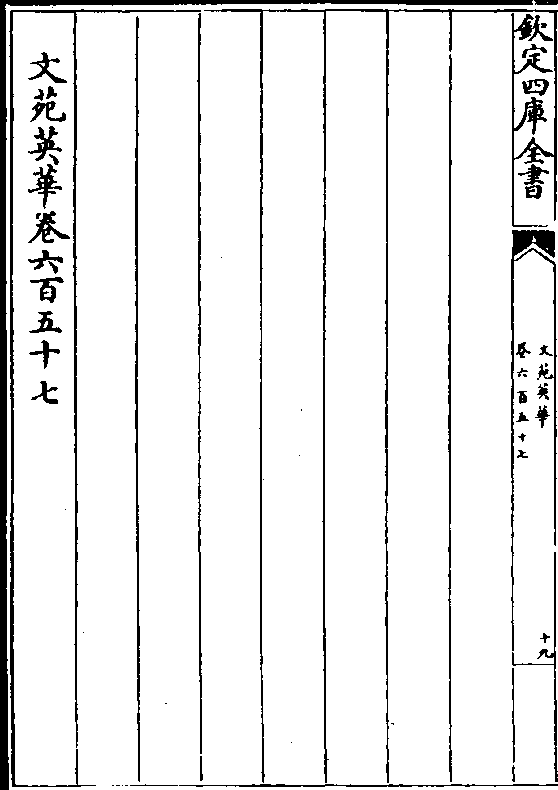 欽定四庫全書
文苑英華
卷六百五十七
十九
文苑英華卷六百五十七